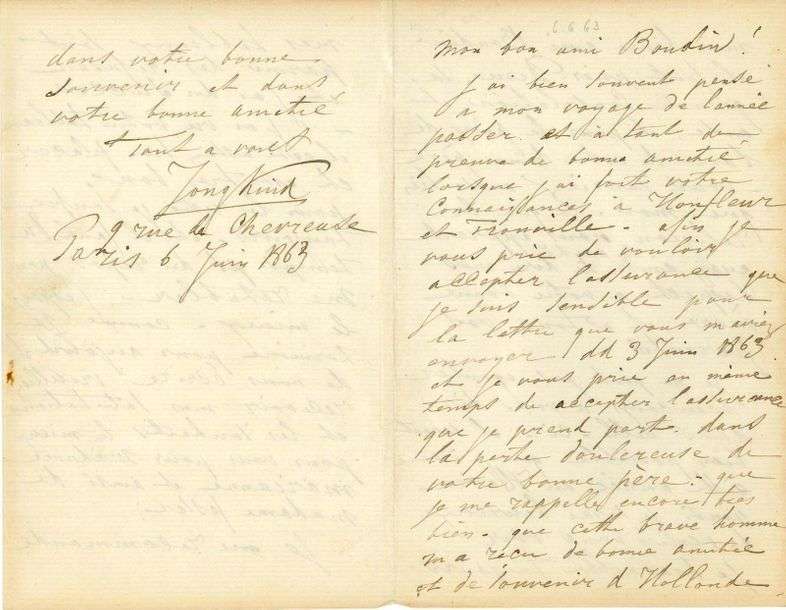 6 6 63
mon bon ami Boudin!
j'ai bien souvent pensé
a mon voyage de l'année
passer. et à tant de
preuve de bonne amitié
lorsque j'ai fait votre
Connaissances à Honfleur
et Trouville - afin je
vous prie de vouloir
accepter l'assurance que
je suis sensible pour
la lettre que vous m'aviez
envoyer dd 3 Juin 1863
et je vous prie au même
temps de accepter l'assurance
que je prend part. dans
la perte doulereuse de
votre bonne père - que
je me rappelle encore bien
bien - que cette brave homme
m'a recu de bonne amitié
et de souvenir d'Hollande
dans votre bonne
souvenir et dans
votre bonne amitié
Tout a vous
Jongkind
9 rue de Chevreuse
Paris 6 Juin 1863